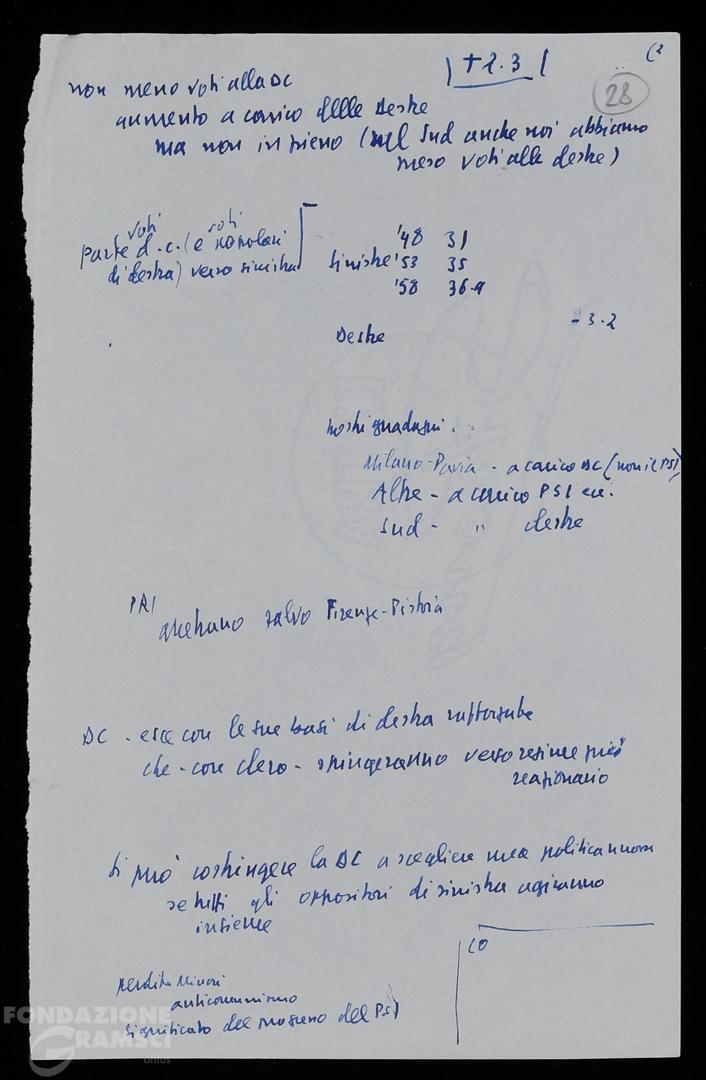 (2
| + 2.3 |
28
non meno voti alla DC
aumento a carico delle Destre
ma non in pieno (nel Sud anche noi abbiamo
preso voti alle destre)
voti voti
parte d.c. (e popolari
di destra) verso sinistra
'48 31
sinistre '53 35
'58 36.9
- 3.2
Destre
nostri guadagni . .
Milano-Pavia - a carico DC (non il PSI)
Altre - a carico PSI ecc.
Sud - " destre
PRI
arretrano salvo Firenze-Pistoia
DC - esce con le sue basi di destra rafforzate
che - con clero - spingeranno verso regime più
reazionario
Si può costringere la DC a scegliere una politica nuova
se tutti gli oppositori di sinistra agiranno
insieme
perdita Minori
anticomunismo
significato del progresso del PSI
FONDAZIONE
GRAMSCI
onlus